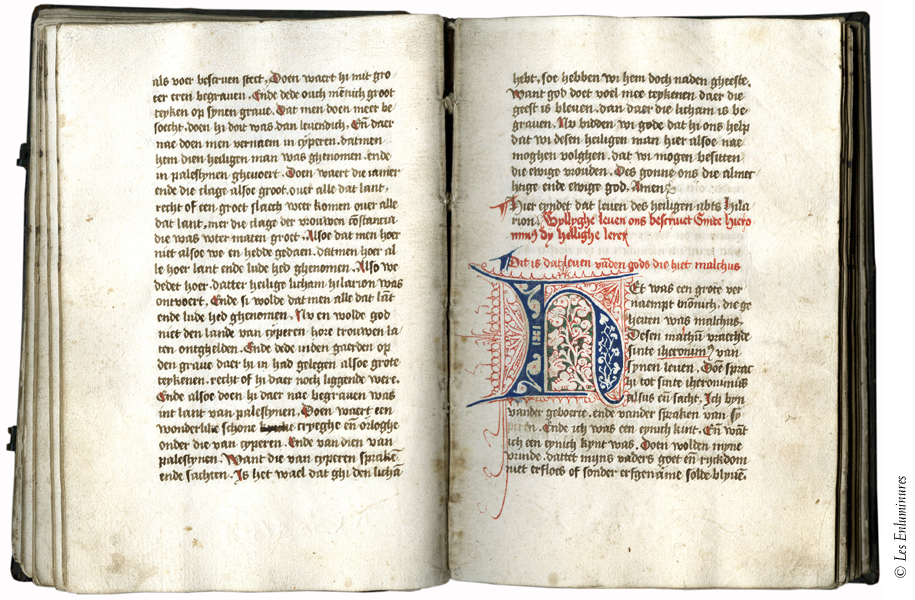 als voer bescruen steet. Doen waert hi mit gro
ter eren begrauen. Ende dede ouch mēnich groot
teyken op synen graue. Dat men doen meer be
socht, doen hi doit was dan leuendich. Eñ daer
nae doen men vernaem in cyperen datmen
hem dien heiligen man was ghenomen. ende
in palestynen gheuoert. Doen waert die iamer
ende die clage alsoe groot. ouer alle dat lant,
recht of een groet slach weer komen ouer alle
dat lant, mer die clage der vrouwen constancia
die was vter maten groet. Alsoe dat men hoer
niet alsoe we en hedde gedaen. datmen hoer al
le hoer lant ende lude hed ghenomen. Also we
dedet hoer, datter heilige licham hilarion was
ontvoert. Ende si wolde dat men alle dat lāt
ende lude hed ghenomen. Nv en wolde god
niet den lande van cyperen hore trouwen la
ten ontghelden. Ende dede inden gaerden op
den graue daer hi in had gelegen alsoe grote
teykenen. recht of hi daer noch liggende were.
Ende alsoe doen hi daer nae begrauen was
int lant van palestynen. Doen waert een
wonderlike schone cryeghe eñ orloghe
onder die van cyperen. Ende van dien van
palestynen. Want die van cyperen sprakē
ende sachten. Is het wael dat ghi den lichā
hebt, soe hebben wi hem doch naden gheeste.
Want god doet voel mee teykenen daer die
geest is bleuen. dan daer die licham is be
grauen. Nv bidden wi gode dat hi ons help
dat wi desen heiligen man hier alsoe nae
moghen volghen. dat wi mogen besitten
die ewige vrouden. Des gonne ons die almec
htige ende ewige god. Amen
Hier eyndet dat leuen des heiligen abts hila
rion. Wyllyghe leuen ons bescriuet Sinte Hiero
nimus dy heilighe lerer
Dat is dat leuen vanden gods die hiet malchus
Het was een grote ver
naempt mōnich, die ge
heiten was malchus.
Desen malchū vraechde
sinte iheronimus van
synen leuen. Doē sprac
hi tot sinte iheronimus
alsus eñ sacht. Ich byn
vander geboerte. ende vander spraken van sy
peren. Ende ich was een eynich kint. Eñ wāt
ich een eynich kynt was. Doen wolden myne
vrinde. dattet mijns vaders goet eñ ryckdom
niet erfloes of sonder erfgename solde blyuē.
© Les Enluminures